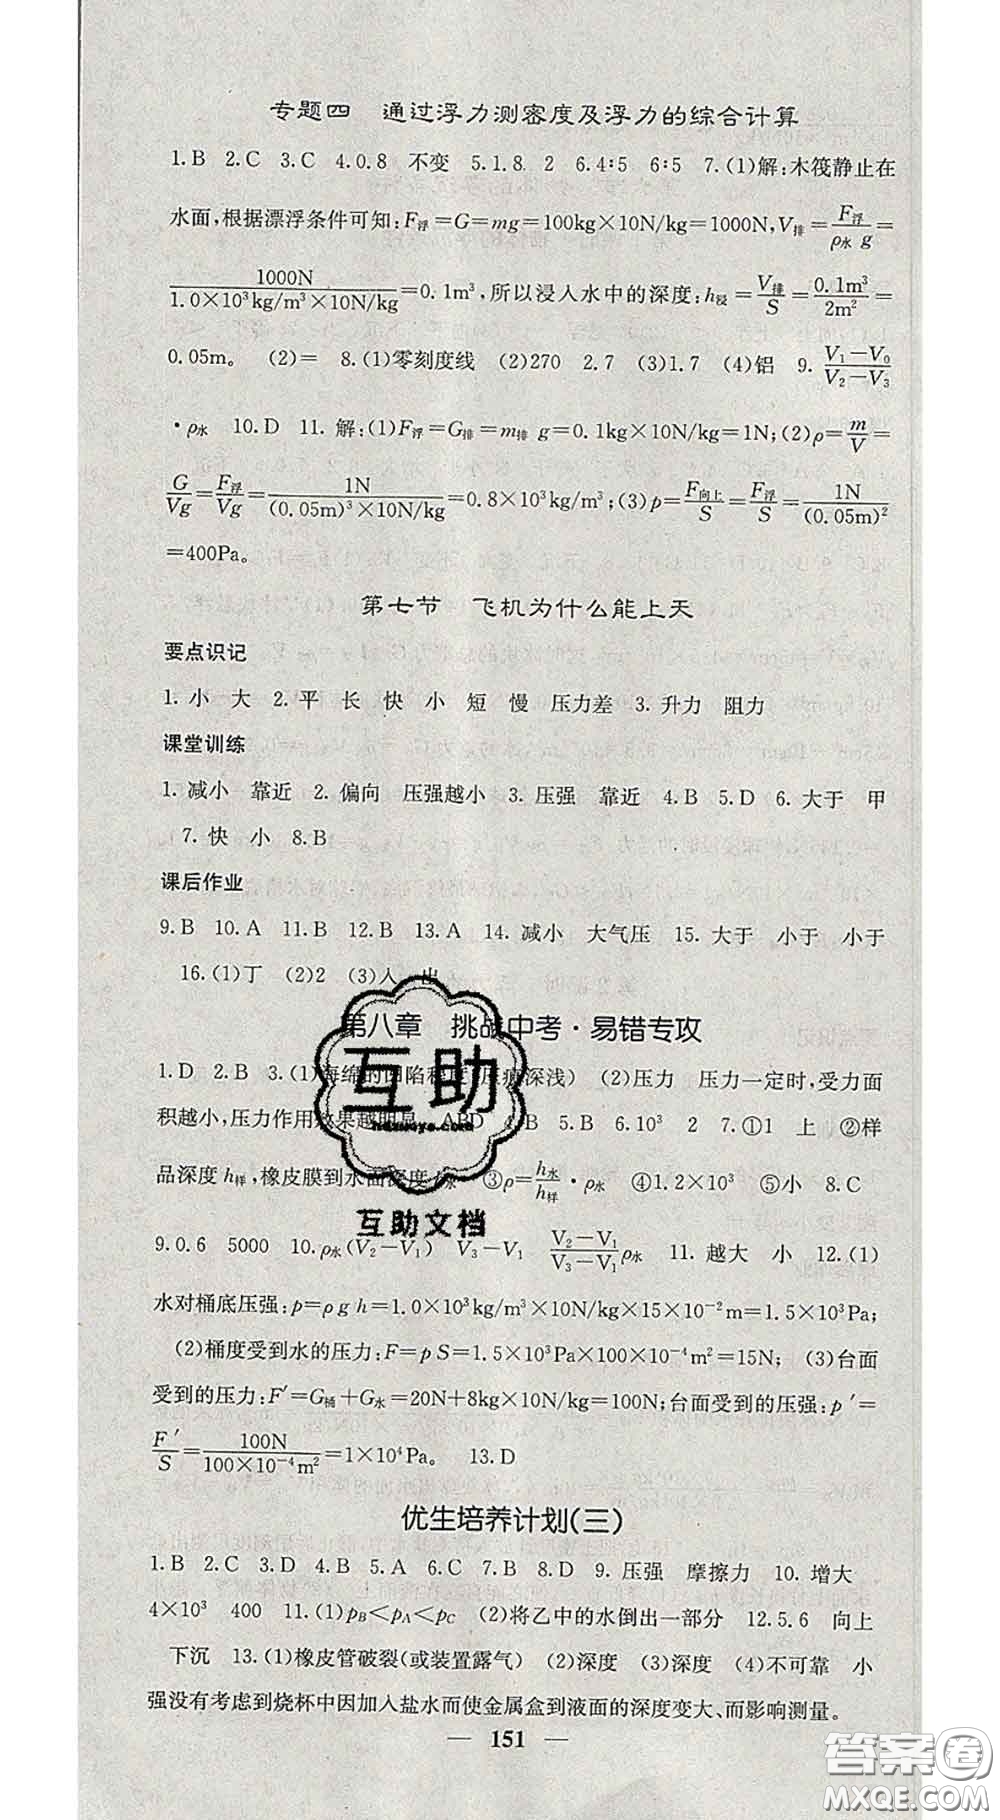 专题四 通过浮力测密度及浮力的综合计算
1.B 2.C 3.C 4.0.8 不变 5.1.8 2 6.4∶5 6∶5 7.(1)解:木筏静止在
水面,根据漂浮条件可知:F浮=G=mg=100kg×10N/kg=1000N,V排=F浮/ρ水 g=
1000N/1.0×10³kg/m³×10N/kg=0.1m³,所以浸入水中的深度:h浸=V排/S=0.1m³/2m²=
0.05m。 (2)= 8.(1)零刻度线 (2)270 2.7 (3)1.7 (4)铝 9. V₁-V₀/V₂-V₃
·ρ水 10.D 11. 解:(1)F浮=G排=m排 g=0.1kg×10N/kg=1N;(2)ρ=m/V=
G/Vg=F浮/Vg=1N/(0.05m)³×10N/kg=0.8×10³kg/m³;(3)p=F向上/S=F浮/S=1N/(0.05m)²
=400Pa。
第七节 飞机为什么能上天
要点识记
1. 小 大 2. 平 长 快 小 短 慢 压力差 3. 升力 阻力
课堂训练
1. 减小 靠近 2. 偏向 压强越小 3. 压强 靠近 4.B 5.D 6. 大于 甲
7. 快 小 8.B
课后作业
9.B 10.A 11.B 12.B 13.A 14. 减小 大气压 15. 大于 小于 小于
16.(1)丁 (2)2 (3)入 出
第八章 挑战中考·易错专攻
1.D 2.B 3.(1)海绵的凹陷程度(压痕深浅) (2)压力 压力一定时,受力面
积越小,压力作用效果越明显 ABD 4.B 5.B 6.10³ 2 7.①1 上 ②样
品深度 h样,橡皮膜到水面深度 h水 ③ρ=h水/h样·ρ水 ④1.2×10³ ⑤小 8.C
9.0.6 5000 10.ρ水(V₂-V₁) V₃-V₁ V₂-V₁/V₃-V₁ρ水 11. 越大 小 12.(1)
水对桶底压强:p=ρ g h=1.0×10³kg/m³×10N/kg×15×10⁻²m=1.5×10³Pa;
(2)桶度受到水的压力:F=p S=1.5×10³Pa×100×10⁻⁴m²=15N; (3)台面
受到的压力:F′=G桶+G水=20N+8kg×10N/kg=100N;台面受到的压强:p′=
F′/S=100N/100×10⁻⁴m²=1×10⁴Pa。 13.D
优生培养计划(三)
1.B 2.C 3.D 4.B 5.A 6.C 7.B 8.D 9. 压强 摩擦力 10. 增大
4×10³ 400 11.(1)pB<pA<pC (2)将乙中的水倒出一部分 12.5.6 向上
下沉 13.(1)橡皮管破裂(或装置露气) (2)深度 (3)深度 (4)不可靠 小
强没有考虑到烧杯中因加入盐水而使金属盒到液面的深度变大、而影响测量。
— 151 —
互助
互助文档
答案圈
MXQE.COM